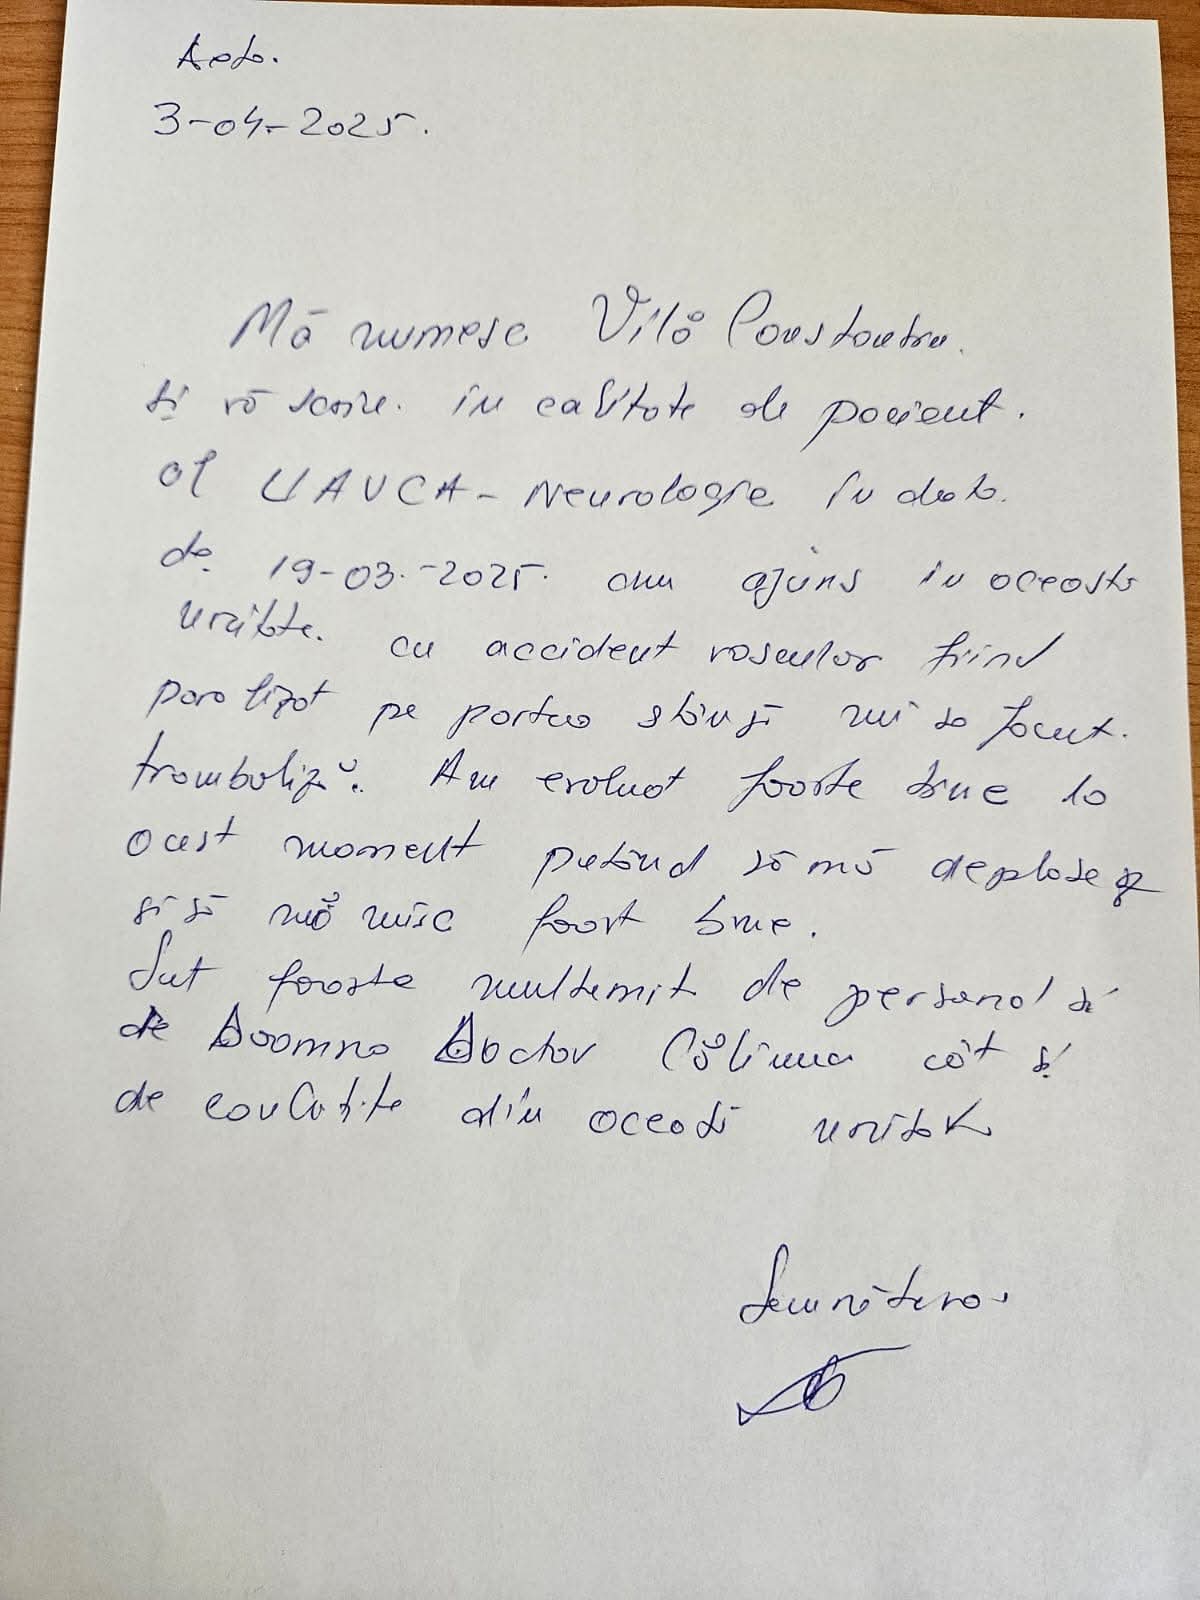 3-04-2025.
Mă numesc Vilă Constantin.
și vă scriu. în calitate de pacient.
al UAVCA - Neurologie în data.
de 19-03.-2025. am ajuns în aceasta
unitate. cu accident vascular fiind
paralizat pe partea stângă mi sa facut.
tromboliză. Am evoluat foarte bine la
acest moment putând să mă deplasez
și să mă mișc foart bine.
Sut foarte multemit de personal și
de Doomna Doctor Călinua cât și
de condițite din aceată unitate
Semnătura.